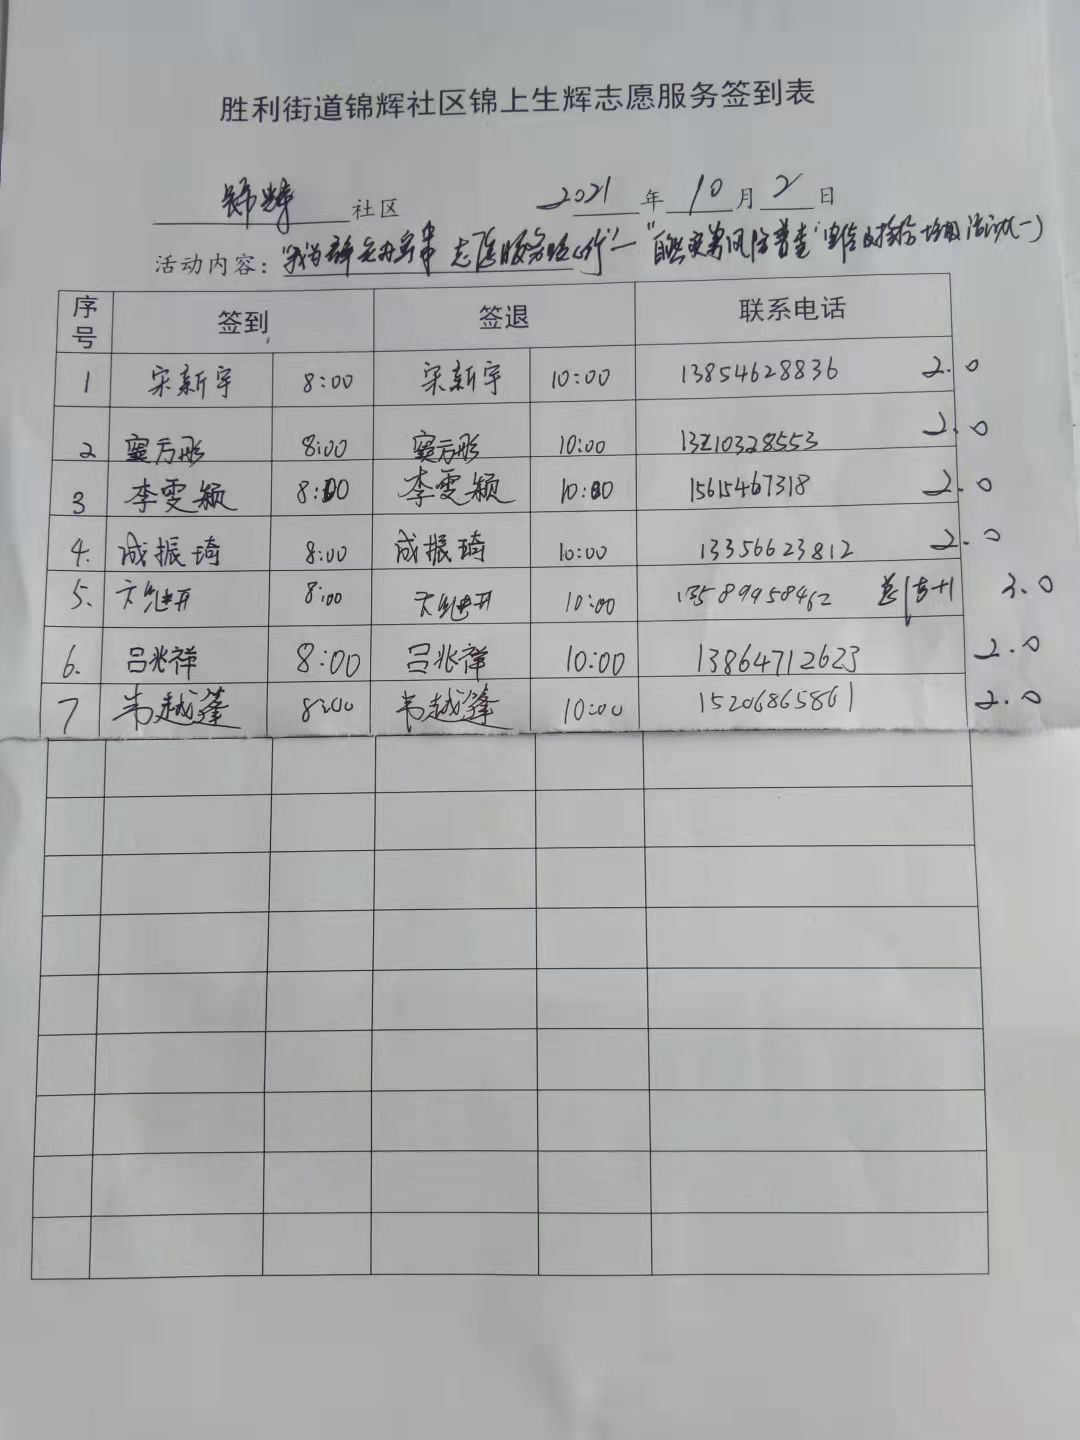 胜利街道锦辉社区锦上生辉志愿服务签到表
锦辉 社区 2021 年 10 月 2 日
活动内容: "我为群众办实事 志愿服务暖心行"一"自然灾害风险普查"宣传 活动(一)
序号 签到 签退 联系电话
1 宋新宇 8:00 宋新宇 10:00 13854628836 2.0
2 窦方彤 8:00 窦方彤 10:00 13210328553 2.0
3 李雯颖 8:00 李雯颖 10:00 15615467318 2.0
4. 成振琦 8:00 成振琦 10:00 13356623812 2.0
5. 8:00 10:00 13589958462 +1 3.0
6. 吕兆祥 8:00 吕兆祥 10:00 13864712623 2.0
7 韦越蓬 8:00 韦越蓬 10:00 15206865861 2.0